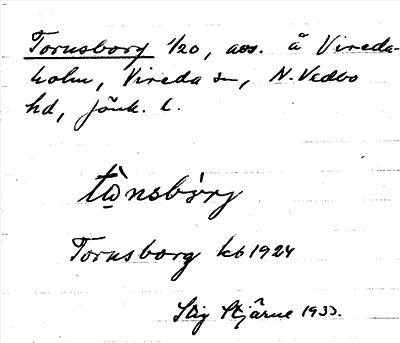 Tornsborg 1/20, avs. å Vireda-
holm, Vireda sn, N. Vedbo
hd, Jönk. l.
tònsbórj
Tornsborg kb 1924
Stig Stjärne 1933.